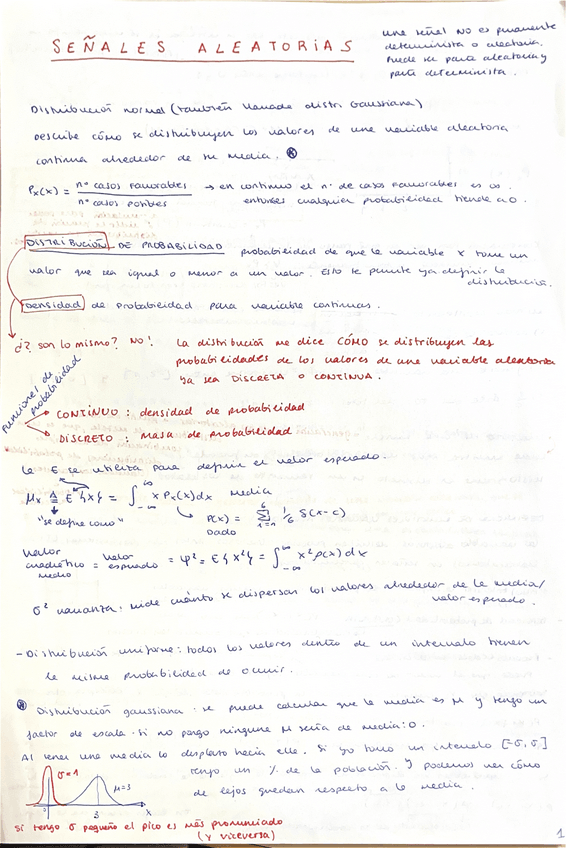 SEÑALES ALEATORIAS
una señal NO es puramente
determinista o aleatoria.
Puede ser parte aleatoria y
parte determinista.
Distribución normal (también llamada distri Gaussiana)
Describe cómo se distribuyen los valores de una variable aleatoria
continua alrededor de su media. *
Px(x) = nº casos favorables / nº casos posibles → en continuo el nº de casos favorables es ∞.
entonces cualquier probabilidad tiende a 0.
DISTRIBUCIÓN DE PROBABILIDAD probabilidad de que la variable x tome un
valor que sea igual o menor a un valor. Esto te permite ya definir la
distribución.
Densidad de probabilidad para variable continuas.
¿? son lo mismo? NO! La distribución me dice CÓMO se distribuyen las
probabilidades de los valores de una variable aleatoria
ya sea DISCRETA o CONTINUA.
Funciones de
probabilidad
CONTÍNUO: densidad de probabilidad
DISCRETO: masa de probabilidad
la E se utiliza para definir el valor esperado.
μx ≜ E{x} = ∫_{-∞}^{∞} x Px(x)dx media
"se define como"
P(x) = Σ_{i=n}^{6} 1/6 δ(x-c)
Dado
Valor cuadrático medio = valor esperado = φ² = E{x²} = ∫_{-∞}^{∞} x² p(x) dx
σ² varianza: mide cuánto se dispersan los valores alrededor de la media/
valor esperado.
- Distribución uniforme: todos los valores dentro de un intervalo tienen
la misma probabilidad de ocurrir.
* Distribución gaussiana: se puede calcular que la media es μ y tengo un
factor de escala. Si no pongo ninguna μ sería de media: 0.
Al tener una media lo desplazo hacia ella. Si yo tomo un intervalo [-σ, σ]
tengo un % de la población. Y podemos ver cómo
de lejos quedan respecto a la media.
σ=1
μ=3
0
3
x
Si tengo σ pequeño el pico es más pronunciado
(y viceversa)
1